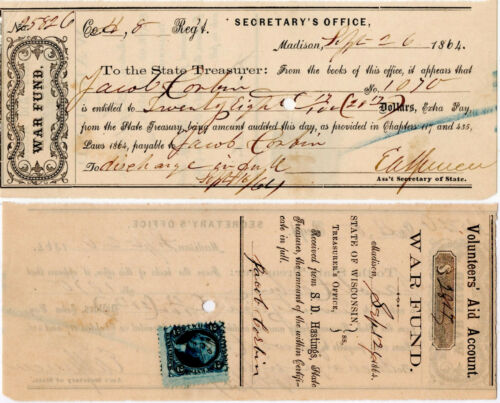 No. 25826
Co. H, 8 Reg't.
SECRETARY'S OFFICE,
Madison, Sept 26 1864.
WAR FUND.
To the State Treasurer: From the books of this office, it appears that
Jacob Corbin No. 1070
is entitled to Twenty eight & 17/100 Dollars, Extra Pay,
from the State Treasury, being amount audited this day, as provided in Chapters 117 and 435,
Laws 1864, payable to Jacob Corbin
To discharge in full
Sept 16/64
Ass't Secretary of State.
Volunteers' Aid Account.
$ 28 17
WAR FUND.
Madison, Sept 26 1864.
STATE OF WISCONSIN, } ss.
TREASURER'S OFFICE,
Received from S. D. Hastings, State
Treasurer, the amount of the within Certifi-
cate in full.
Jacob Corbin